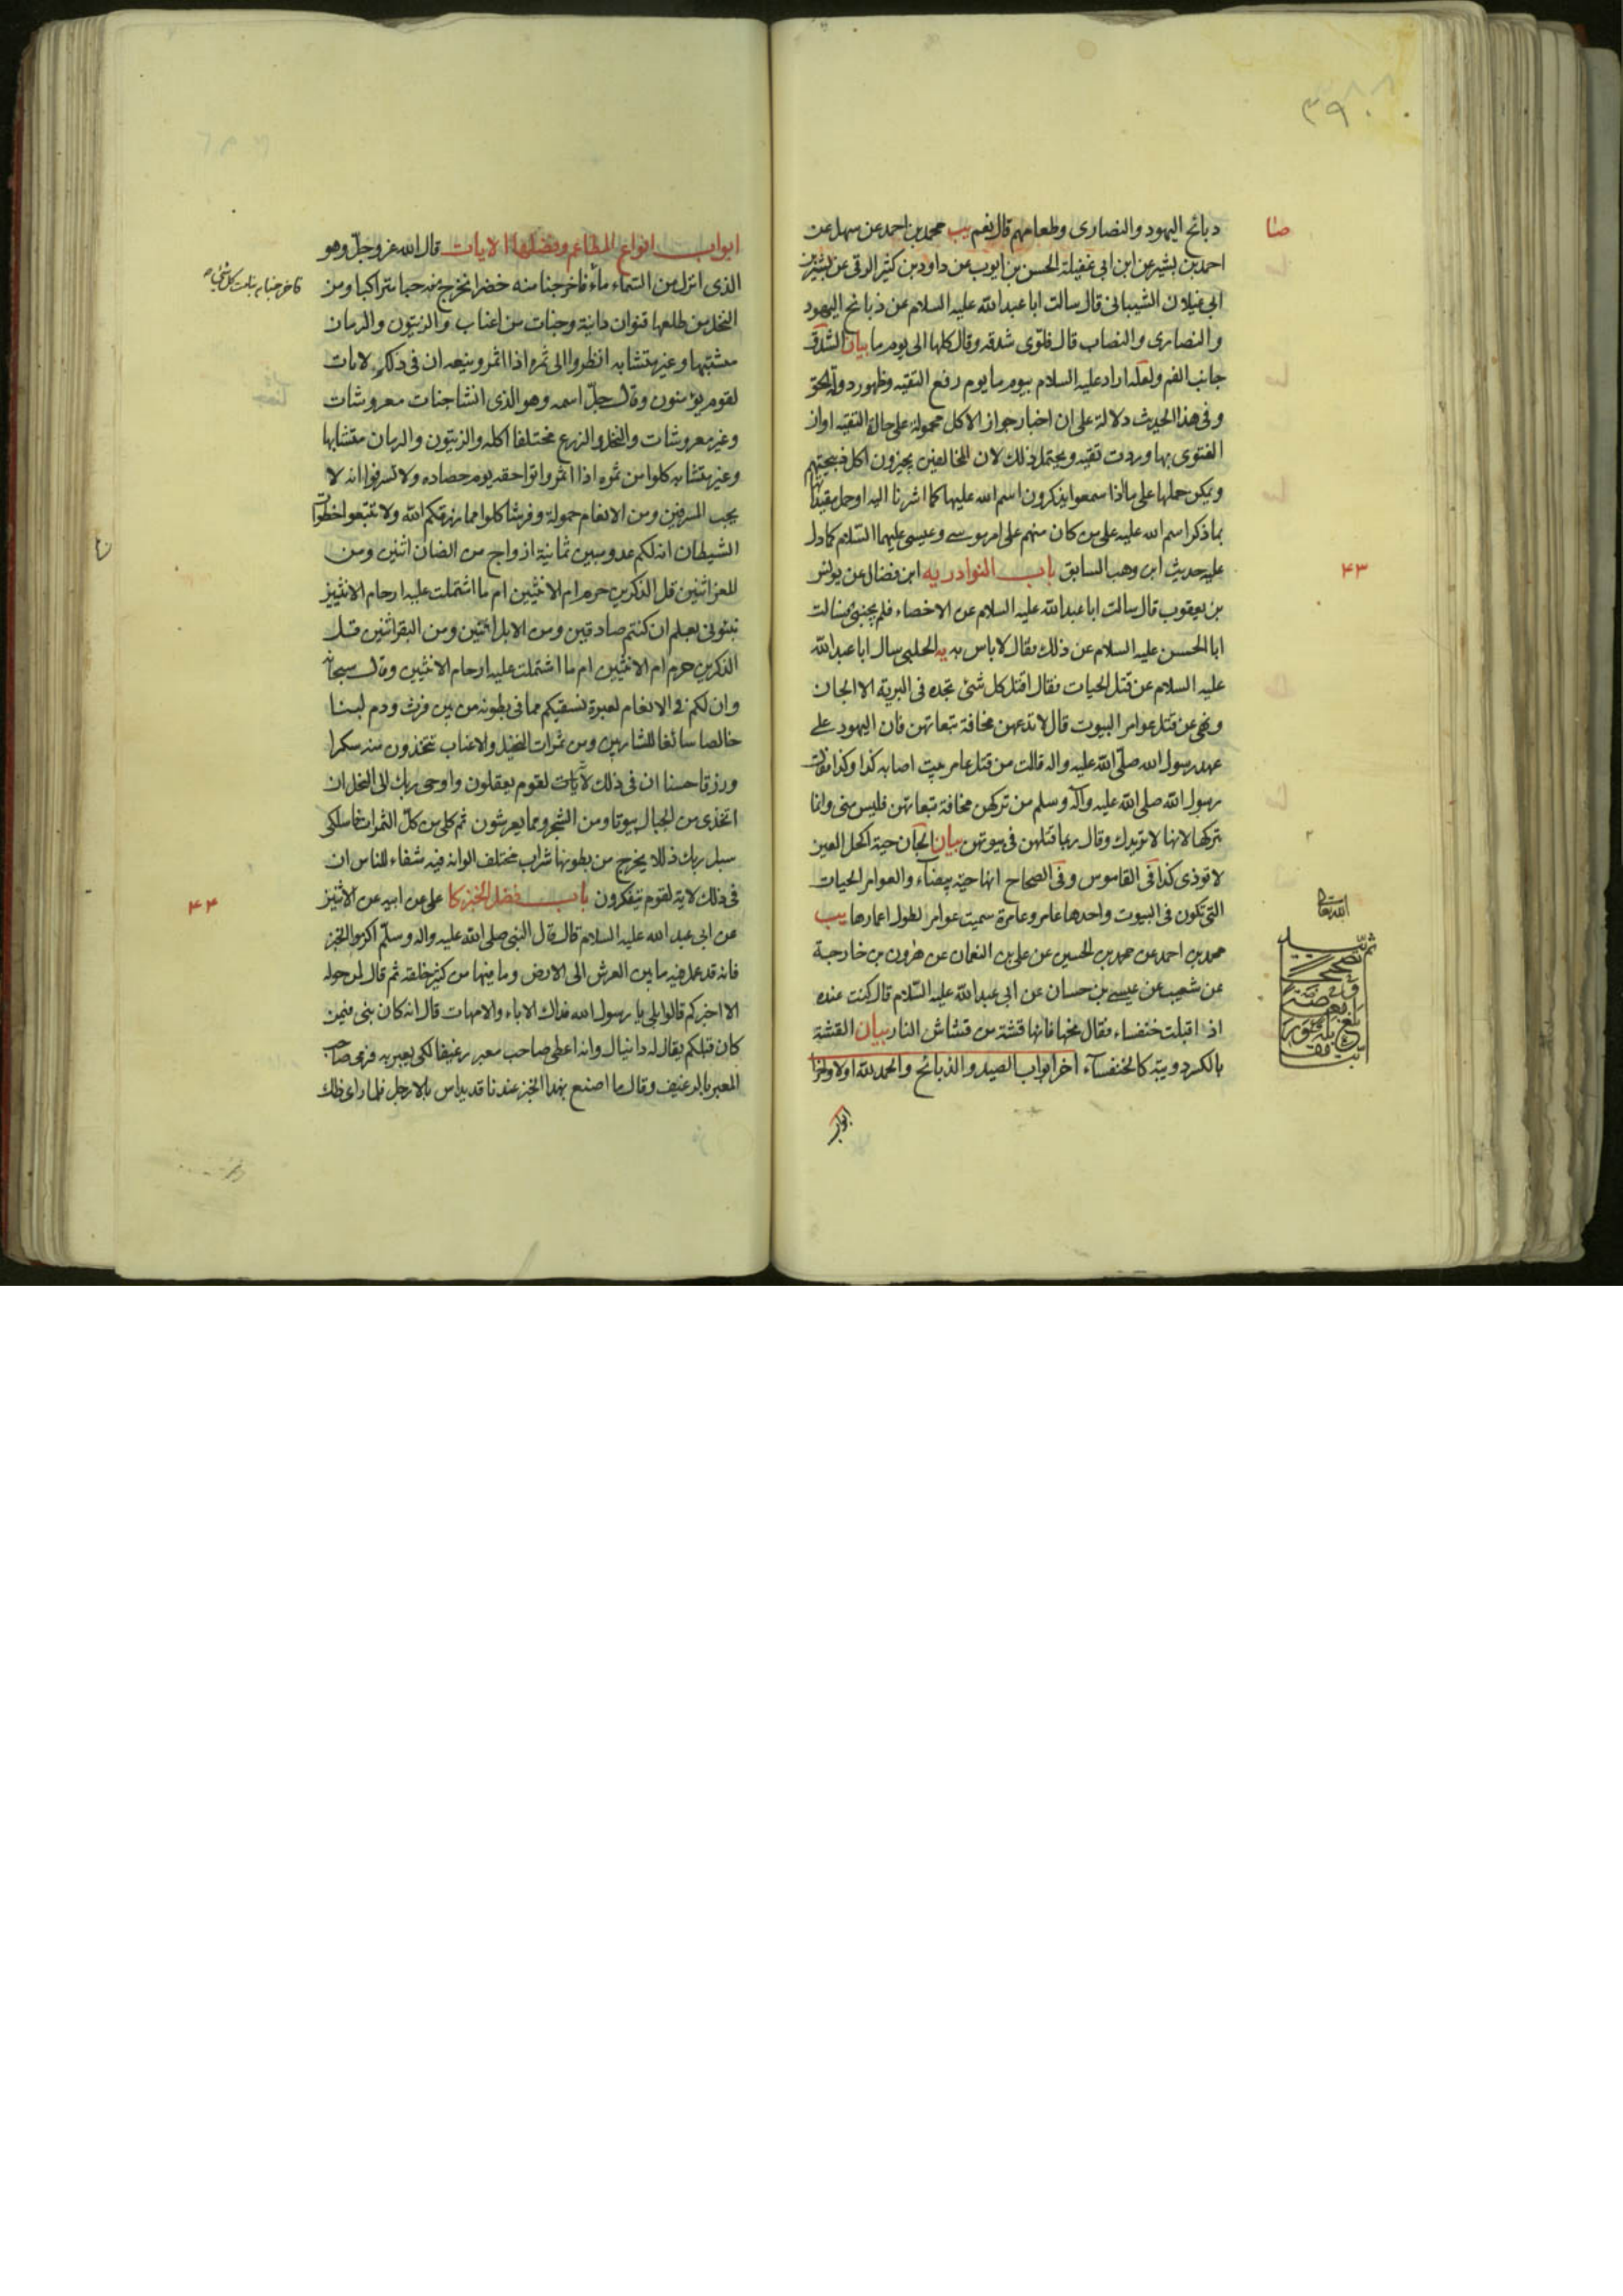 ذبائح اليهود والنصارى وطعامهم قال نعم يب محمد بن احمد عن سهل عن
احمد بن بشير عن ابن ابى غفيلة الحسن بن ايوب عن داود بن كثير الرقى عن بشير بن
ابى غيلان الشيبانى قال سالت ابا عبد الله عليه السلام عن ذبائح اليهود
والنصارى والنصاب قال فلوى شدقه وقال كلها الى يوم ما بيان الشدق
جانب الفم ولعله اراد عليه السلام بيوم ما يوم رفع التقيه وظهور دولة الحق
وفى هذا الحديث دلالة على ان اخبار جواز الاكل محمولة على حالة التقيه او ان
الفتوى بها وردت تقيه ويحتمل ذلك لان المخالفين يجيزون اكل ذبيحتهم
ويمكن حملها على ما اذا سمعوا يذكرون اسم الله عليها كما اشرنا اليه او حل مقيدا
بما ذكر اسم الله عليه على من كان منهم على امر موسى وعيسى عليهما السلام كما دل
عليه حديث ابن وهب السابق باب النوادر يه ابن فضال عن يونس
بن يعقوب قال سالت ابا عبد الله عليه السلام عن الاخصاء فلم يجبنى فسالت
ابا الحسن عليه السلام عن ذلك فقال لا باس به يه الحلبى سال ابا عبد الله
عليه السلام عن قتل الحيات فقال اقتل كل شئ تجده فى البرية الا الجان
ونهى عن قتل عوامر البيوت قال لا تدعهن مخافة تبعاتهن فان اليهود على
عهد رسول الله صلى الله عليه واله قالت من قتل عامر بيت اصابه كذا وكذا فقال
رسول الله صلى الله عليه وآله وسلم من تركهن مخافة تبعاتهن فليس منى وانما
تتركها لانها لا تريدك وقال ربما قتلهن فى بيوتهن بيان الجان حية اكحل العين
لا توذى كذا فى القاموس وفى الصحاح انها حية بيضاء والعوامر الحيات
التى تكون فى البيوت واحدها عامر وعامرة سميت عوامر لطول اعمارها يب
محمد بن احمد عن محمد بن الحسين عن على بن النعمان عن هرون بن خارجة
عن شعيب عن عيسى بن حسان عن ابى عبد الله عليه السلام قال كنت عنده
اذ اقبلت خنفساء فقال نحها فانها قشة من قشاش النار بيان القشة
بالكسر دويبة كالخنفساء اخر ابواب الصيد والذبائح والحمد لله اولا واخرا
ابواب
۳۹۰
۴۳
ابواب انواع المطاعم وفضلها الايات قال الله عز وجل وهو
الذى انزل من السماء ماء فاخرجنا منه خضرا نخرج منه حبا متراكبا ومن
فاخرجنا به نبات كل شئ
النخل من طلعها قنوان دانية وجنات من اعناب والزيتون والرمان
مشتبها وغير متشابه انظروا الى ثمره اذا اثمر وينعه ان فى ذلكم لايات
لقوم يؤمنون وقال جل اسمه وهو الذى انشا جنات معروشات
وغير معروشات والنخل والزرع مختلفا اكله والزيتون والرمان متشابها
وغير متشابه كلوا من ثمره اذا اثمر واتوا حقه يوم حصاده ولا تسرفوا انه لا
يحب المسرفين ومن الانعام حمولة وفرشا كلوا مما رزقكم الله ولا تتبعوا خطوات
الشيطان انه لكم عدو مبين ثمانية ازواج من الضان اثنين ومن
المعز اثنين قل الذكرين حرم ام الانثيين ام ما اشتملت عليه ارحام الانثيين
نبئونى بعلم ان كنتم صادقين ومن الابل اثنين ومن البقر اثنين قل
الذكرين حرم ام الانثيين ام ما اشتملت عليه ارحام الانثيين وقال سبحانه
وان لكم فى الانعام لعبرة نسقيكم مما فى بطونه من بين فرث ودم لبنا
خالصا سائغا للشاربين ومن ثمرات النخيل والاعناب تتخذون منه سكرا
ورزقا حسنا ان فى ذلك لآيات لقوم يعقلون واوحى ربك الى النحل ان
اتخذى من الجبال بيوتا ومن الشجر ومما يعرشون ثم كلى من كل الثمرات فاسلكى
سبل ربك ذللا يخرج من بطونها شراب مختلف الوانه فيه شفاء للناس ان
فى ذلك لاية لقوم يتفكرون باب فضل الخبز كا على عن ابيه عن الاثنين
۴۴
عن ابى عبد الله عليه السلام قال قال النبى صلى الله عليه واله وسلم اكرموا الخبز
فانه قد عمل فيه ما بين العرش الى الارض وما فيها من كثير خلقه ثم قال لمن حوله
الا اخبركم قالوا بلى يا رسول الله فداك الاباء والامهات قال انه كان نبى فيمن
كان قبلكم يقال له دانيال وانه اعطى صاحب معبر رغيفا لكى يعبر به فرمى صاحب
المعبر بالرغيف وقال ما اصنع بهذا الخبز عندنا قد يداس بالارجل فلما راى ذلك